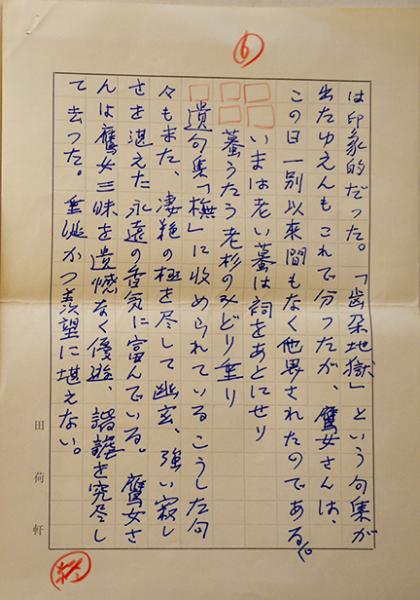 6
は印象的だった。「歯朶地獄」という句集が
出たゆえんもこれで分ったが、鷹女さんは、
この日一別以来間もなく他界されたのである。
いまは老い蟇は詞をあとにせり
蟇うたう老杉のみどり垂り
遺句集「橅」に収められているこうした句
々もまた、凄艶の極を尽して幽玄、強い寂し
さを湛えた永遠の香気に富んでいる。鷹女さ
んは鷹女三昧を遺憾なく優遊、諧謔を究尽し
て去った。重畳かつ羨望に堪えない。
田荷軒